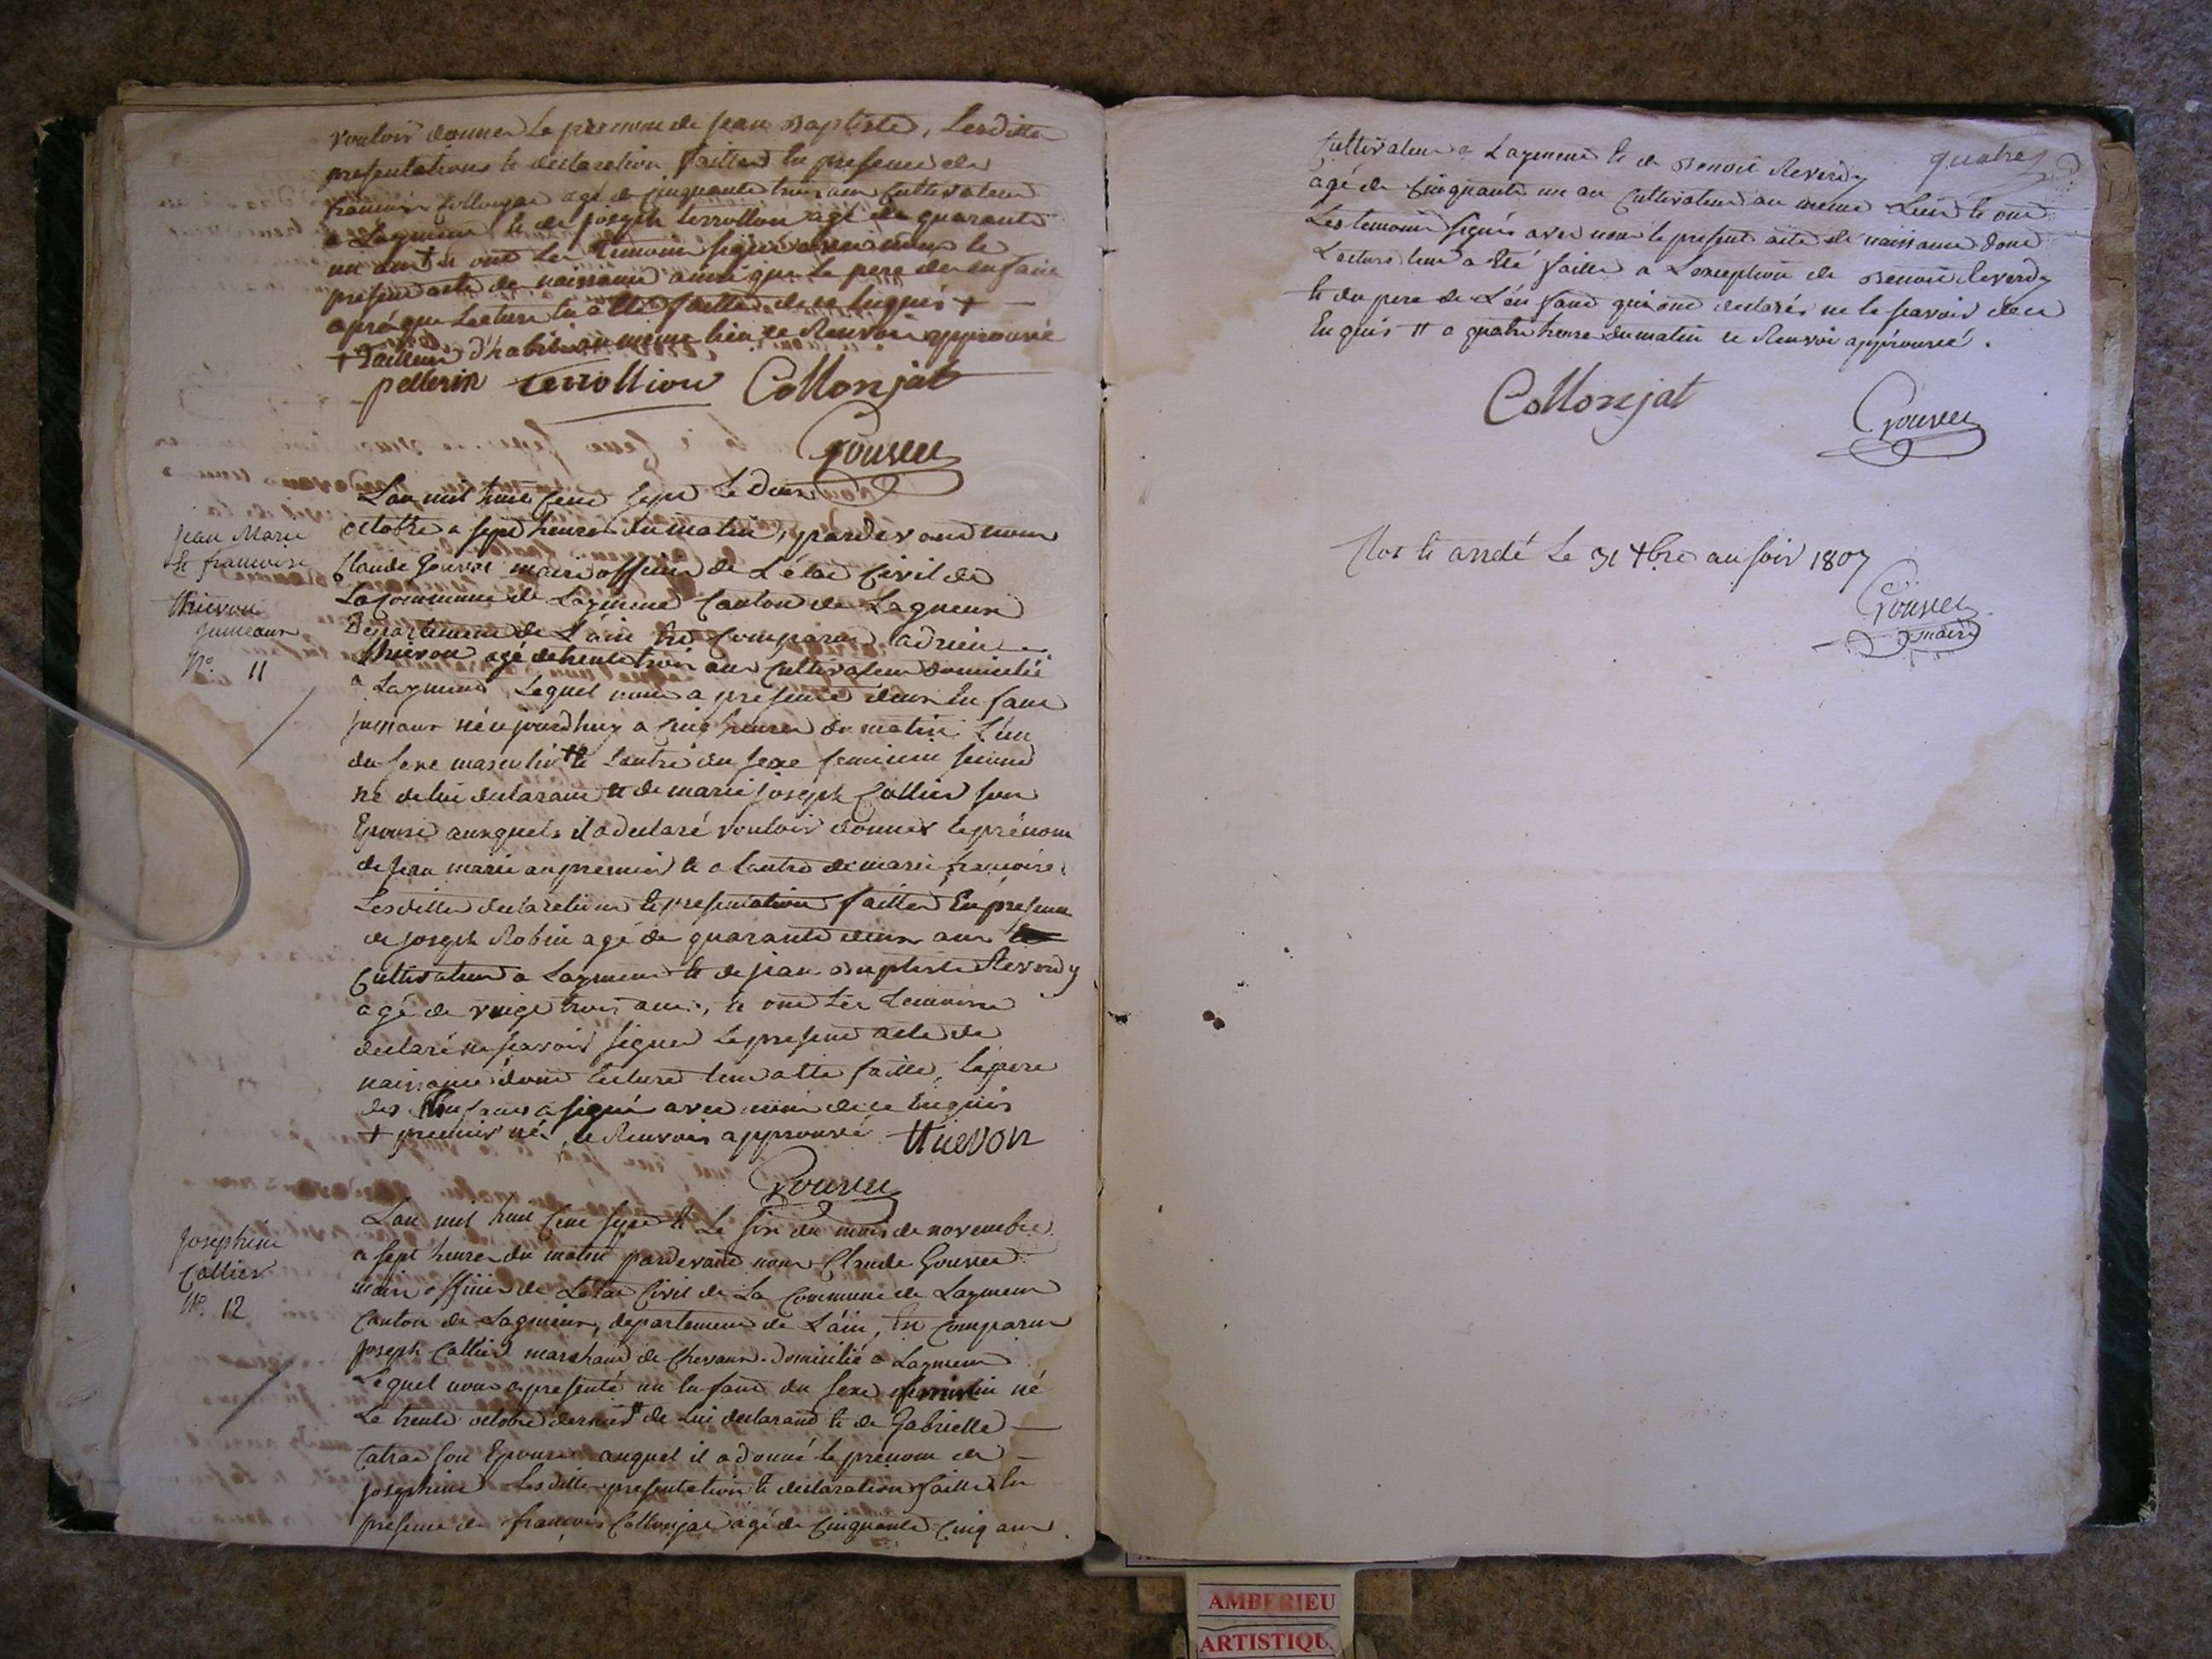 vouloir donner le prenom de jean Baptiste, lesditte
presentations et declaration faitte En presence de
francois Collonjat agé de cinquante trois ans Cultivateur
a Laymens et de joseph terrollion agé de quarante
un ans + et ont les temoins signé avec nous le
present acte de naissance ainsi que le pere de lenfant
aprés que lecture En a été faitte de ce Enquis +
+ Tailleur d'habit au meme lieu ce Renvoi approuvé
pellerin terrollion Collonjat
Gouvet
Jean Marie
Et francoise
thievon
jumeaux
N.o 11
Lan mil huit Cent Sept Le deux
octobre a sept heures du matin, pardevant nous
Claude Gouvet maire officier de L'état Civil de
La Commune de Laymens Canton de Lagneux
Departement de L'ain Est Comparu adrien
thievon agé de trente trois ans Cultivateur domicilié
a Laymens, Lequel nous a presenté deux Enfans
jumeaux né cejourdhuy a Cinq heures du matin L'un
du sexe masculin + et Lautre du sexe feminin second
né de lui declarant et de marie joseph Callier son
Epouse auxquels il a declaré vouloir donner le prénom
de jean marie au premier et a lautre de marie francoise,
Lesdittes declarations et presentation faittes En présence
de joseph Robin agé de quarante deux ans
Cultivateur a Laymens et de jean Baptiste Reverdy
agé de vingt trois ans, et ont les temoins
declaré ne scavoir signer le present acte de
naissance dont lecture leur a été faitte, le pere
des Enfans a signé avec nous de ce Enquis
+ premier né, ce Renvois approuvé thievon
Gouvet
Josephine
Callier
N.o 12
Lan mil huit Cent sept et Le six du mois de novembre
a sept heures du matin pardevant nous Claude Gouvet
maire officier de Létat Civil de La Commune de Laymens
Canton de Lagnieux, departement de L'ain, Est Comparu
Joseph Callier marchand de Chevaux domicilié a Laymens
Lequel nous a presenté un Enfant du sexe feminin né
Le trente octobre dernier # de Lui declarant et de Gabrielle
son Epouse auquel il a donné le prénom de
josephine Lesdittes presentation et declaration faitte En
présence de françois Collonjat agé de Cinquante Cinq ans
quatre
Cultivateur a Laymens Et de Benoit Reverdy
agé de Cinquante un an Cultivateur au meme Lieu Et ont
Les temoins signés avec nous le present acte de naissance dont
Lecture leur a Eté faitte a Lexception de Benoit Reverdy
Et du pere de L'en fant qui ont declarés ne le scavoir de ce
Enquis # a quatre heures du matin ce Renvoi appröuvé.
Collonjat Gouvet
Clos et arreté Le 31 Xbre au soir 1807
Gouvet
maire
AMBERIEU
ARTISTIQU